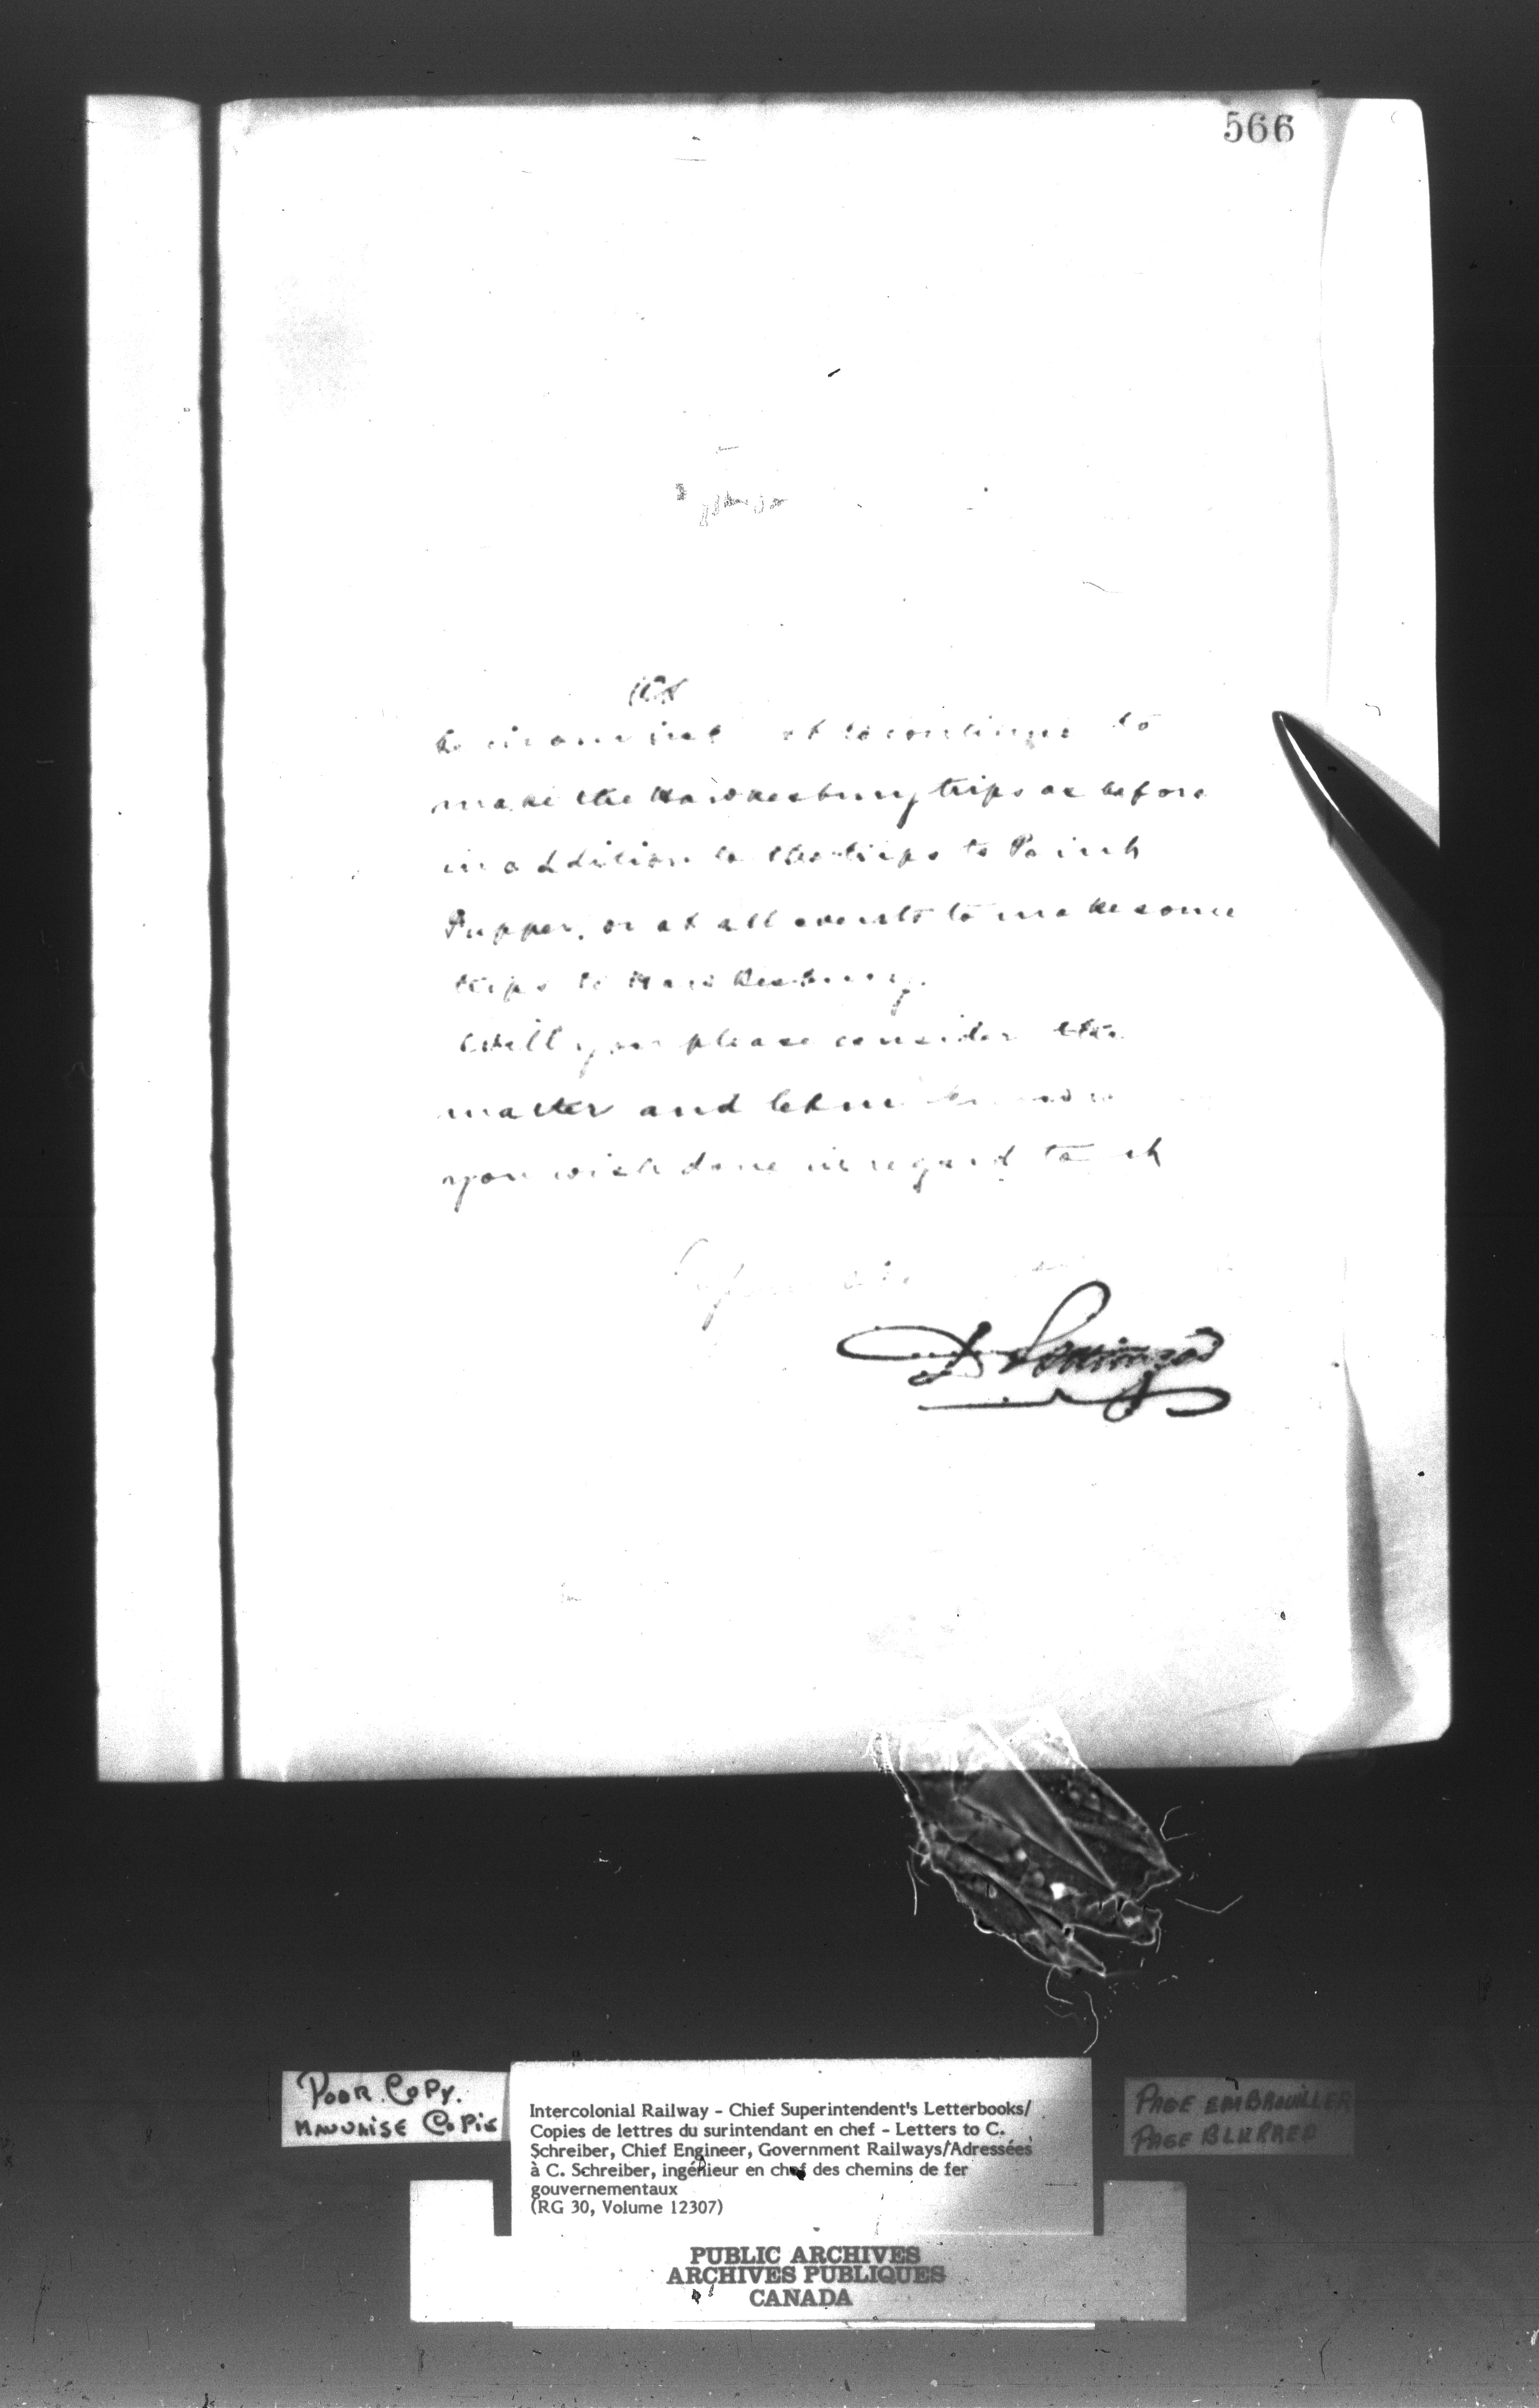 566
to
make the Hawkesbury trips as before
in addition to the trips to Point
Tupper, or at all events to make some
trips to Hawkesbury.
Will you please consider the
matter and let me
you wish done in regard to it
Yours
D Pottinger
POOR COPY.
MAUVAISE COPIE
Intercolonial Railway - Chief Superintendent's Letterbooks/
Copies de lettres du surintendant en chef - Letters to C.
Schreiber, Chief Engineer, Government Railways/Adressées
à C. Schreiber, ingénieur en chef des chemins de fer
gouvernementaux
(RG 30, Volume 12307)
PAGE EMBROUILLER
PAGE BLURRED
PUBLIC ARCHIVES
ARCHIVES PUBLIQUES
CANADA